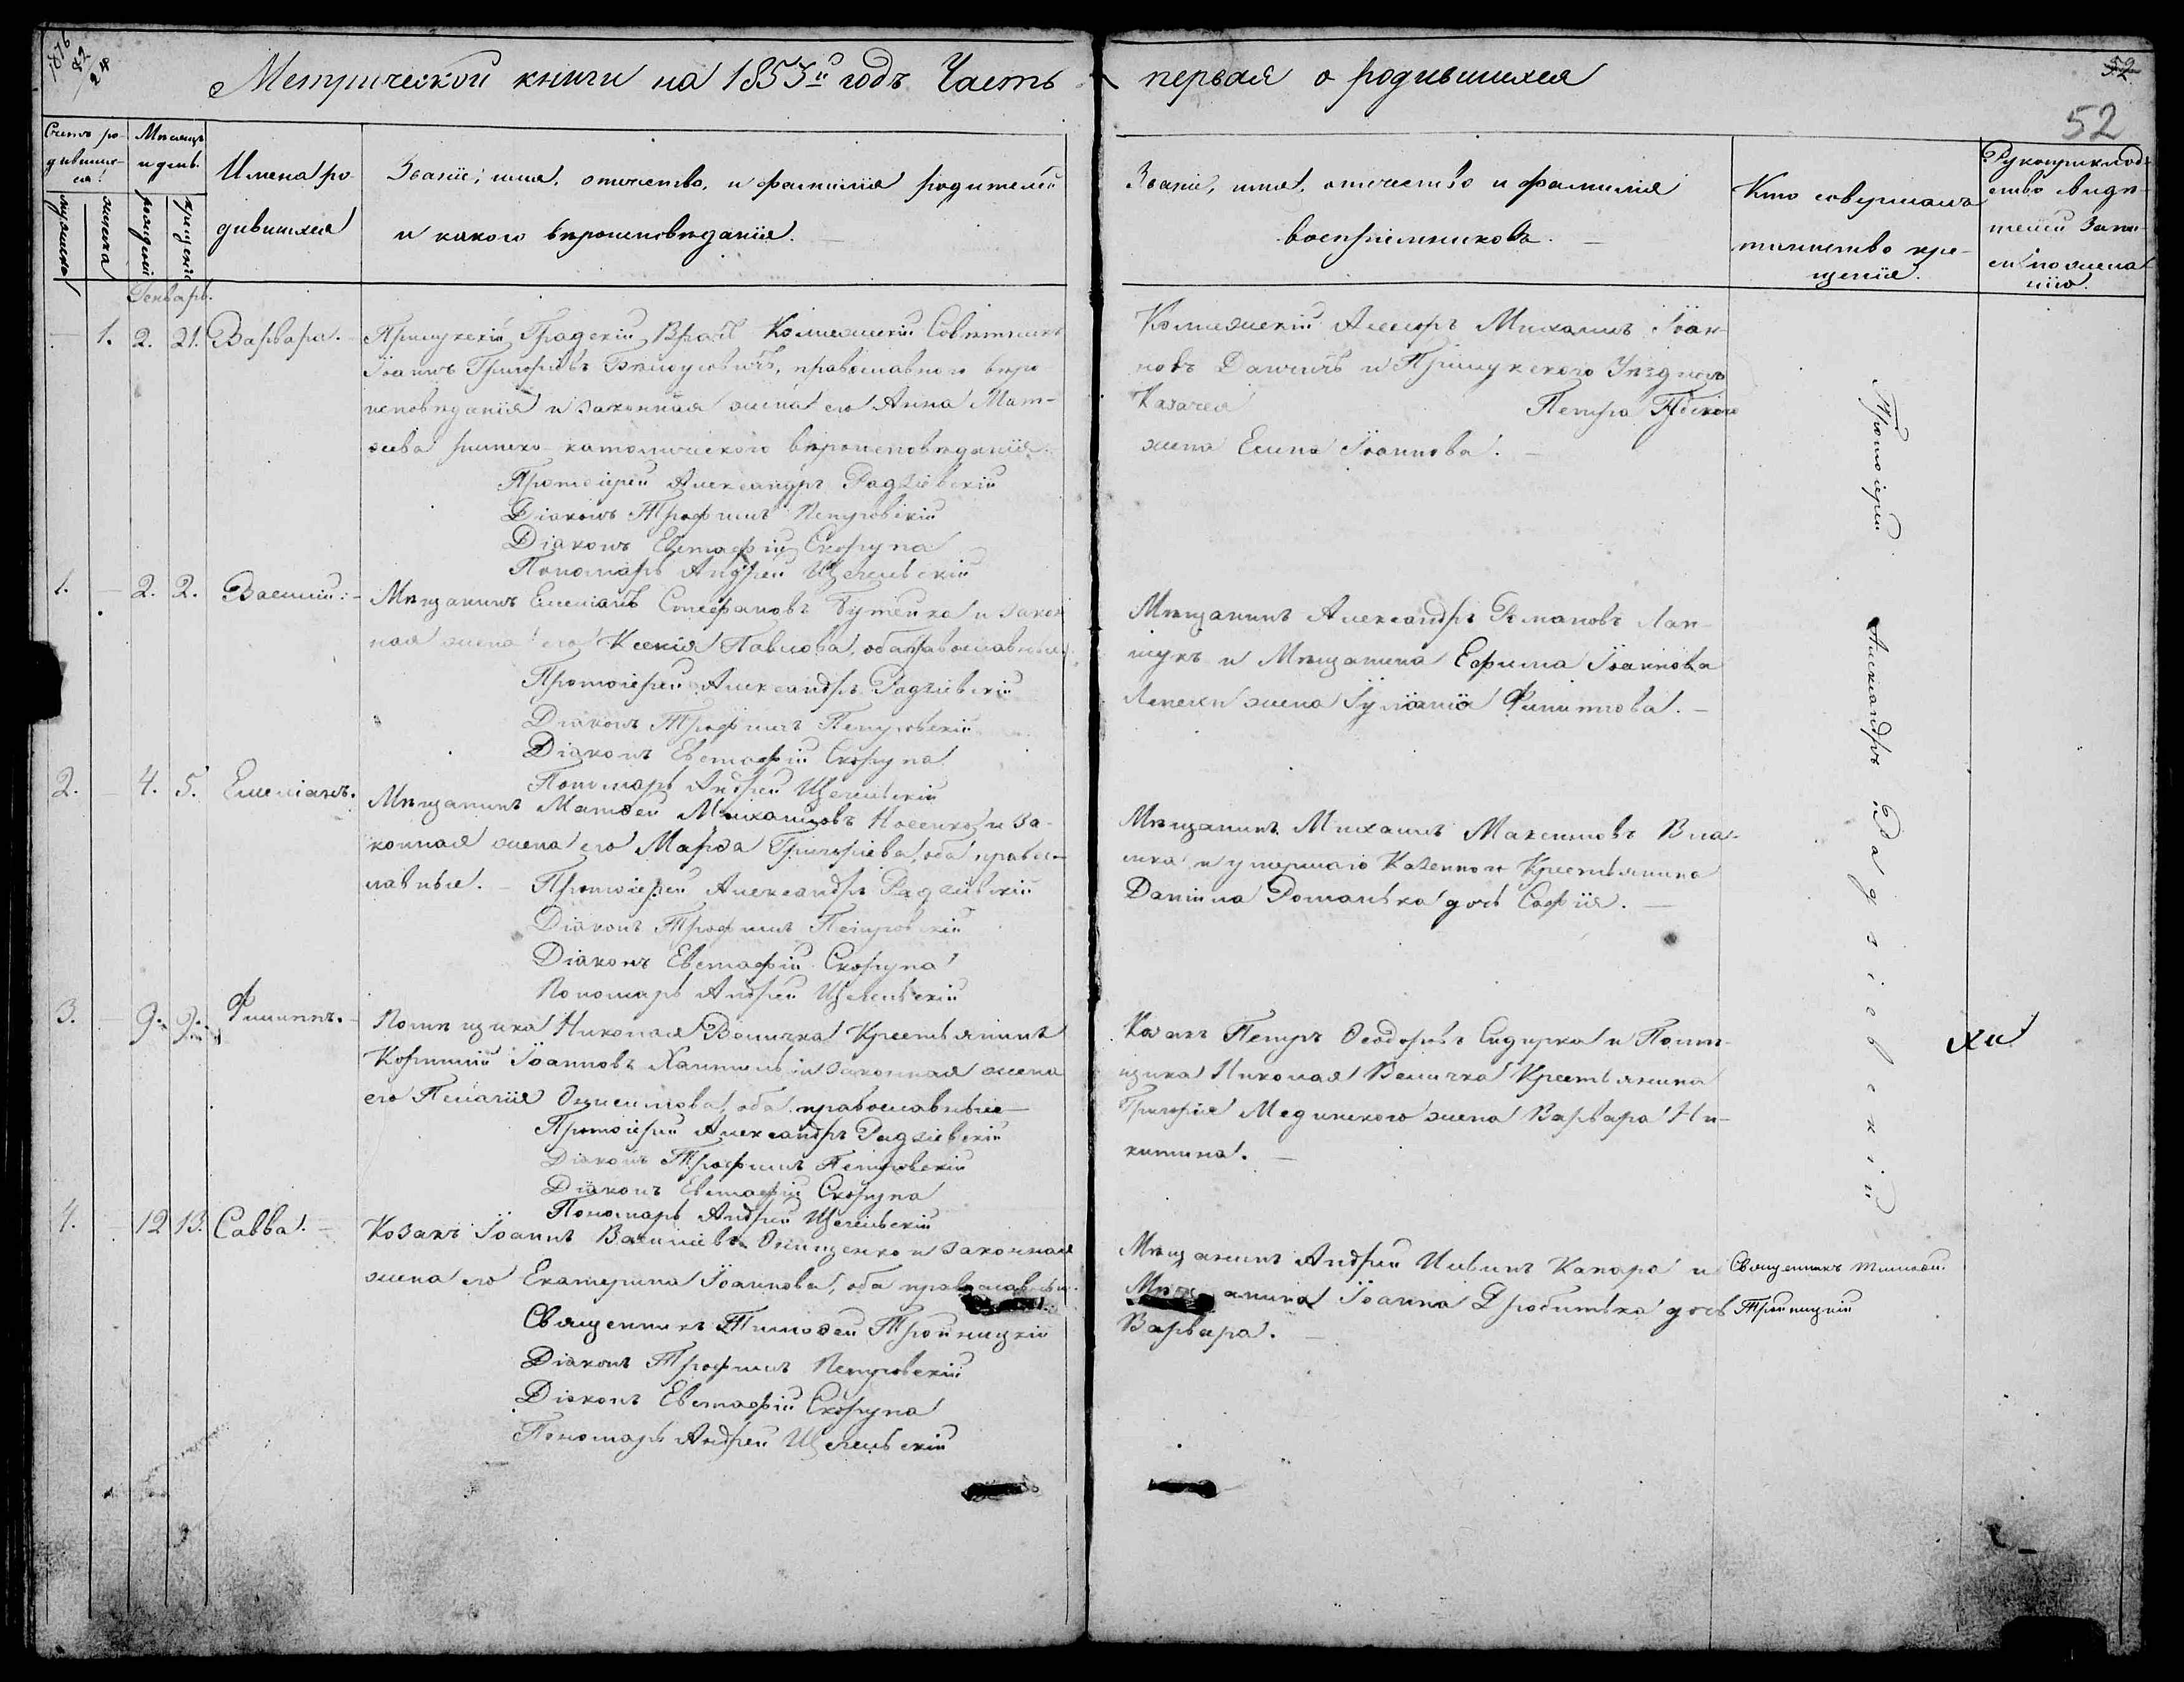 1876
82
24
Метрической книги на 1853й годъ Часть первая о родившихся
52
52
Счетъ ро-
дивших-
ся.
мужеска
женска
Месяцъ
и день.
рожденія
крещенія
Имена ро-
дившихся
Званіе, имя, отчество, и фамилія родителей
и какого вѣроисповѣданія. —
Званіе, имя, отчество и фамилія
воспріемниковъ. —
Кто совершалъ
таинство кре-
щенія.
Рукоприклад-
ство свидѣ-
телей запи-
си по жела-
нію.
Генварь.
— 1. 2. 21. Варвара. —
Прилукскій Градскій Врачъ Коллежскій Совѣтникъ
Іоаннъ Григорьевъ Бѣлоусовичъ, православнаго вѣро-
исповѣданія и законная жена его Анна Мат-
ѳева римско-католическаго вѣроисповѣданія.
Протоіерей Александръ Радзіевскій
Діаконъ Трофимъ Петровскій
Діаконъ Евстафій Скорупа
Пономарь Андрей Щегельскій
Коллежскій Ассесоръ Михаилъ Іоан-
новъ и Прилукскаго Уѣзднаго
Казачея Петра
жена Елена Іоаннова. —
1. — 2. 2. Василій. —
Мѣщанинъ Емеліанъ Стефановъ Бутенко и закон-
ная жена его Ксенія Павлова, оба православные.
Протоіерей Александръ Радзіевскій
Діаконъ Трофимъ Петровскій
Діаконъ Евстафій Скорупа
Пономарь Андрей Щегельскій
Мѣщанинъ Александръ Романовъ Лап-
щукъ и Мѣщанина Ефима Іоаннова
жена Іуліанія Филиппова. —
2. — 4. 5. Емеліанъ.
Мѣщанинъ Матѳей Михайловъ Носенко и за-
конная жена его Марѳа Григоріева, оба право-
славные. — Протоіерей Александръ Радзіевскій
Діаконъ Трофимъ Петровскій
Діаконъ Евстафій Скорупа
Пономарь Андрей Щегельскій
Мѣщанинъ Михаилъ Максимовъ
и умершаго Казеннаго Крестьянина
Даніила Романька дочь Софія. —
3. — 9. 9. Филиппъ. —
Помѣщика Николая Величка Крестьянинъ
Корнилій Іоанновъ и законная жена
его Пелагія Онисимова, оба православные —
Протоіерей Александръ Радзіевскій
Діаконъ Трофимъ Петровскій
Діаконъ Евстафій Скорупа
Пономарь Андрей Щегельскій
Козакъ Петръ Ѳеодоровъ Сидорко и Помѣ-
щика Николая Величка Крестьянина
Григорія Мединского жена Варвара Ни-
китина. —
Протоіерей Александръ Радзіевскій
4. — 12 13. Савва. —
Козакъ Іоаннъ Василіевъ Онищенко и законная
жена его Екатерина Іоаннова, оба православные.
Священникъ Тимоѳей Тройницкій
Діаконъ Трофимъ Петровскій
Діаконъ Евстафій Скорупа
Пономарь Андрей Щегельскій
Мѣщанинъ Андрей Ильинъ и
Мѣщанина Іоанна дочь
Варвара. —
Священникъ Тимоѳей
Тройницкій